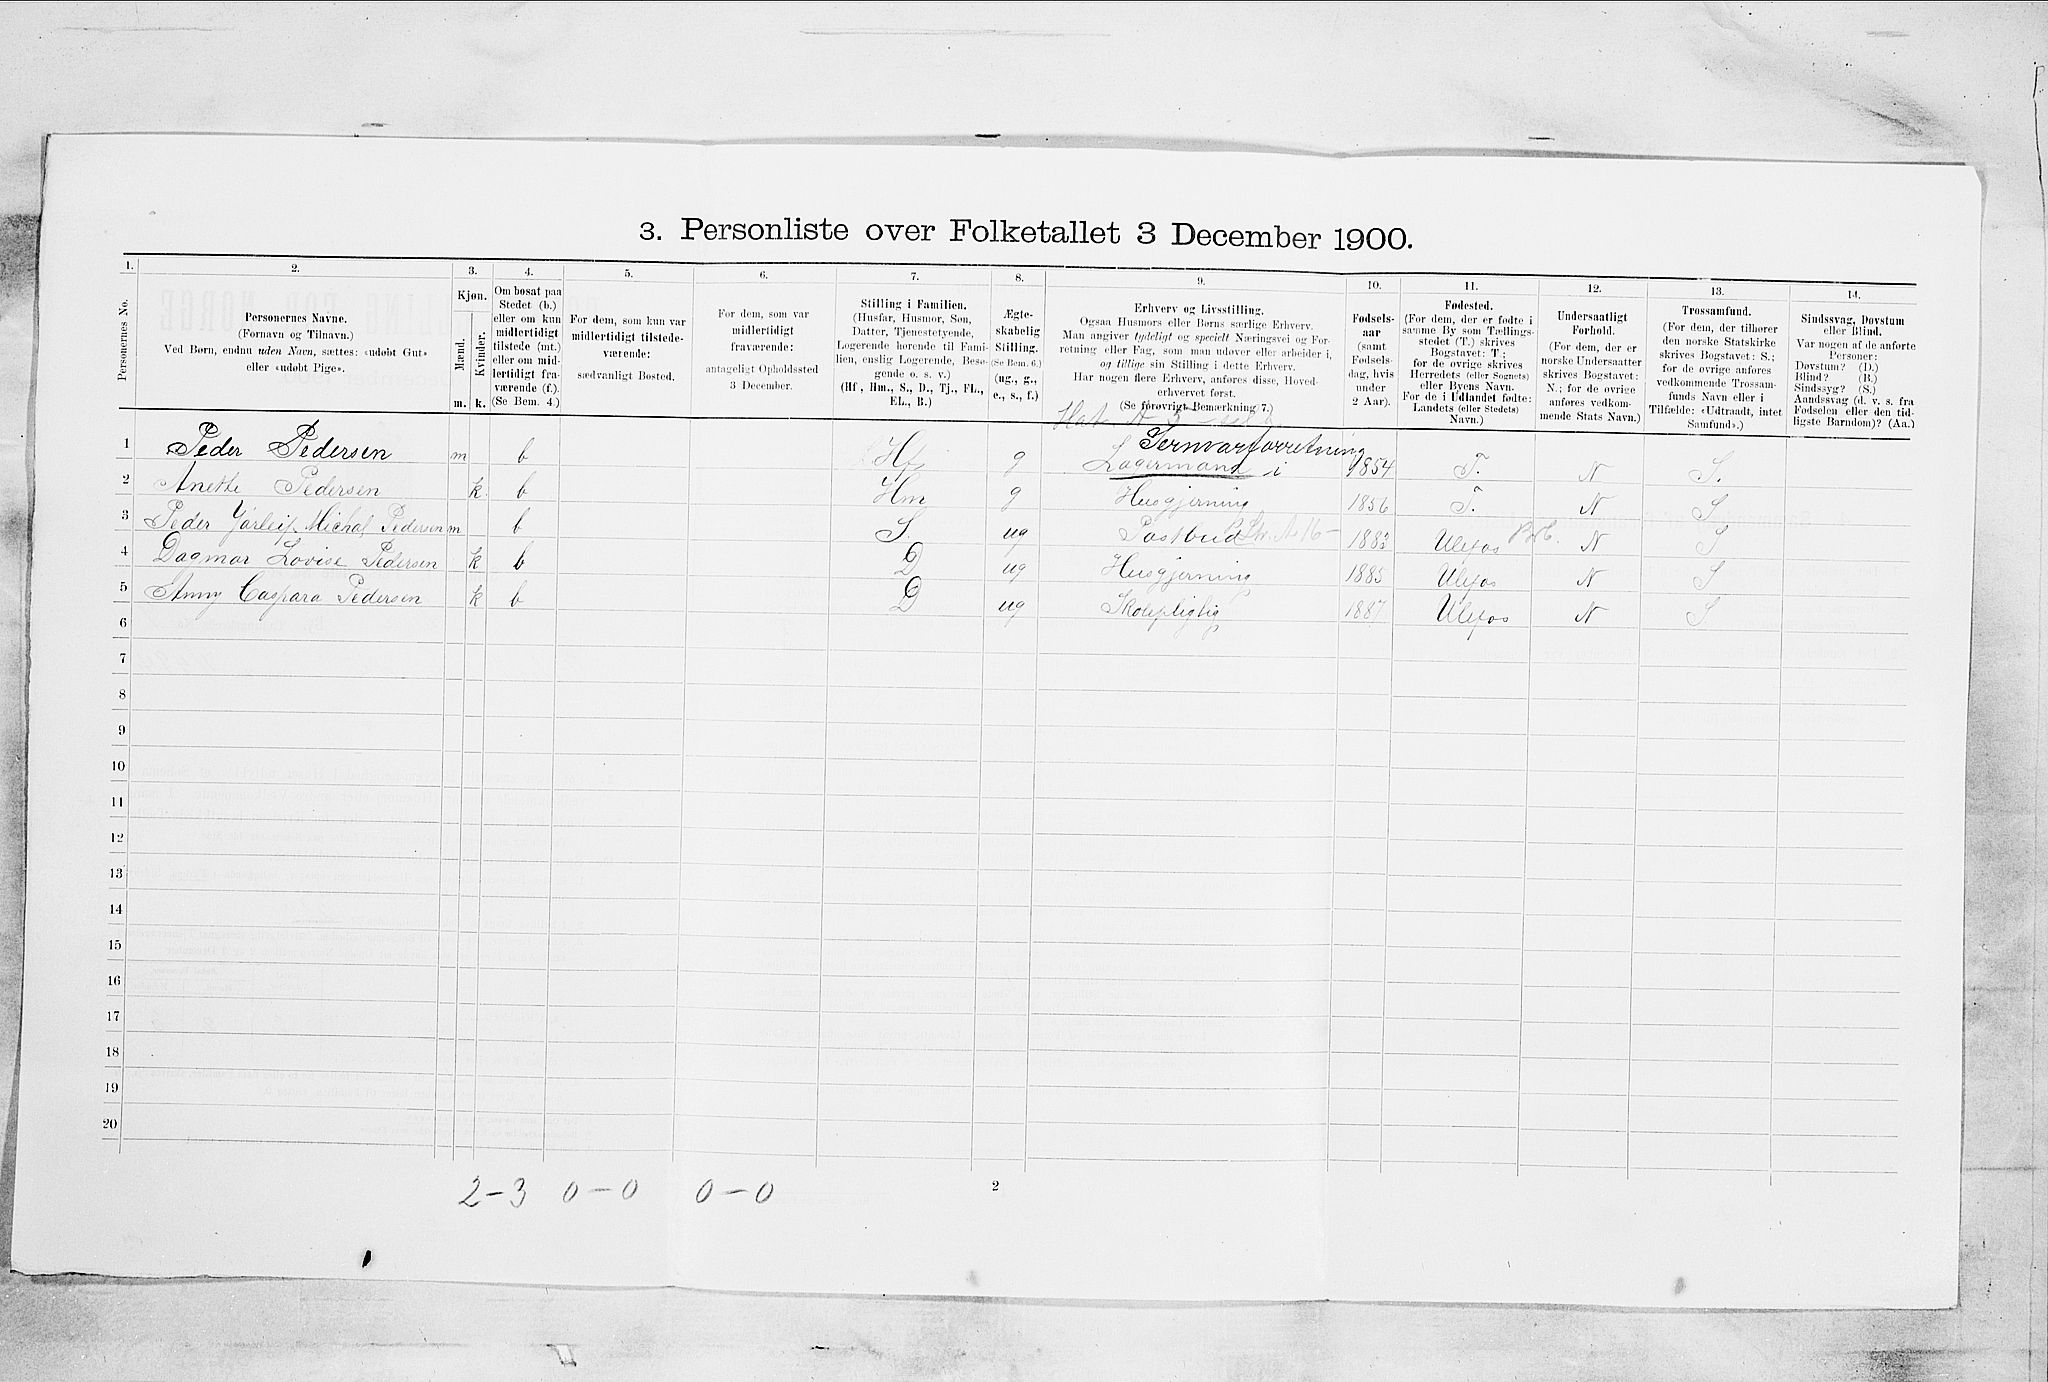 3. Personliste over Folketallet 3 December 1900.
1. 2. 3. 4. 5. 6. 7. 8. 9. 10. 11. 12. 13. 14.
Personernes No.
Personernes Navne.
(Fornavn og Tilnavn.)
Ved Børn, endnu uden Navn, sættes: «udøbt Gut»
eller «udøbt Pige».
Kjøn.
Mænd.
Kvinder.
m. k.
Om bosat paa
Stedet (b.)
eller om kun
midlertidigt
tilstede (mt.)
eller om mid-
lertidigt fra-
værende (f.).
(Se Bem. 4.)
For dem, som kun var
midlertidigt tilstede-
værende:
sædvanligt Bosted.
For dem, som var
midlertidigt
fraværende:
antageligt Opholdssted
3 December.
Stilling i Familien.
(Husfar, Husmor, Søn,
Datter, Tjenestetyende,
Logerende hørende til Fami-
lien, enslig Logerende, Besø-
gende o. s. v.)
(Hf., Hm., S., D., Tj., FL.,
EL., B.)
Ægte-
skabelig
Stilling.
(Se Bem. 6.)
(ug., g.,
e., s., f.)
Erhverv og Livsstilling.
Ogsaa Husmors eller Børns særlige Erhverv.
Man angiver tydeligt og specielt Næringsvei og For-
retning eller Fag, som man udøver eller arbeider i,
og tillige sin Stilling i dette Erhverv.
Har nogen flere Erhverv, anføres disse, Hoved-
erhvervet først.
(Se forøvrigt Bemærkning 7.)
Fødsels-
aar
(samt
Fødsels-
dag, hvis
under
2 Aar).
Fødested.
(For dem, der er fødte i
samme By som Tællings-
stedet (T.) skrives
Bogstavet: T.;
for de øvrige skrives
Herredets (eller Sognets)
eller Byens Navn.
For de i Udlandet fødte:
Landets (eller Stedets)
Navn.)
Undersaatligt
Forhold.
(For dem, der er
norske Undersaatter
skrives Bogstavet:
N.; for de øvrige
anføres vedkom-
mende Stats Navn.)
Trossamfund.
(For dem, der tilhører
den norske Statskirke
skrives Bogstavet: S.;
for de øvrige anføres
vedkommende Trossam-
funds Navn eller i
Tilfælde: «Udtraadt, intet
Samfund».)
Sindssvag, Døvstum
eller Blind.
Var nogen af de anførte
Personer:
Døvstum? (D.)
Blind? (B.)
Sindssyg? (S.)
Aandssvag (d. v. s. fra
Fødselen eller den tid-
ligste Barndom)? (Aa.)
Jernvareforretning
1 Peder Pedersen m b Hf g Lagermand i 1854 T. N S.
2 Anette Pedersen k. b Hm g Husgjerning 1856 T. N S
3 Peder Jørleif Michal Pedersen m b S. ug Postbud 1883 Ulefos N S
4 Dagmar Lovise Pedersen k b D ug Husgjerning 1885 Ulefos N S
5 Anny Caspara Pedersen k b D ug Skolepligtig 1887 Ulefos N S
6
7
8
9
10
11
12
13
14
15
16
17
18
19
20
2-3 0-0 0-0
2